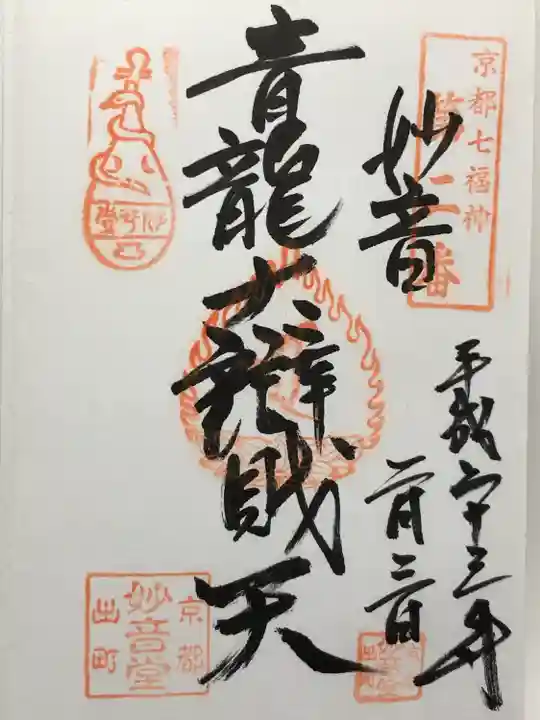 京都七福神
第二番
妙音
平成二十三年
二月二日
青龍大辯財天
妙音堂
京都
妙音堂
出町